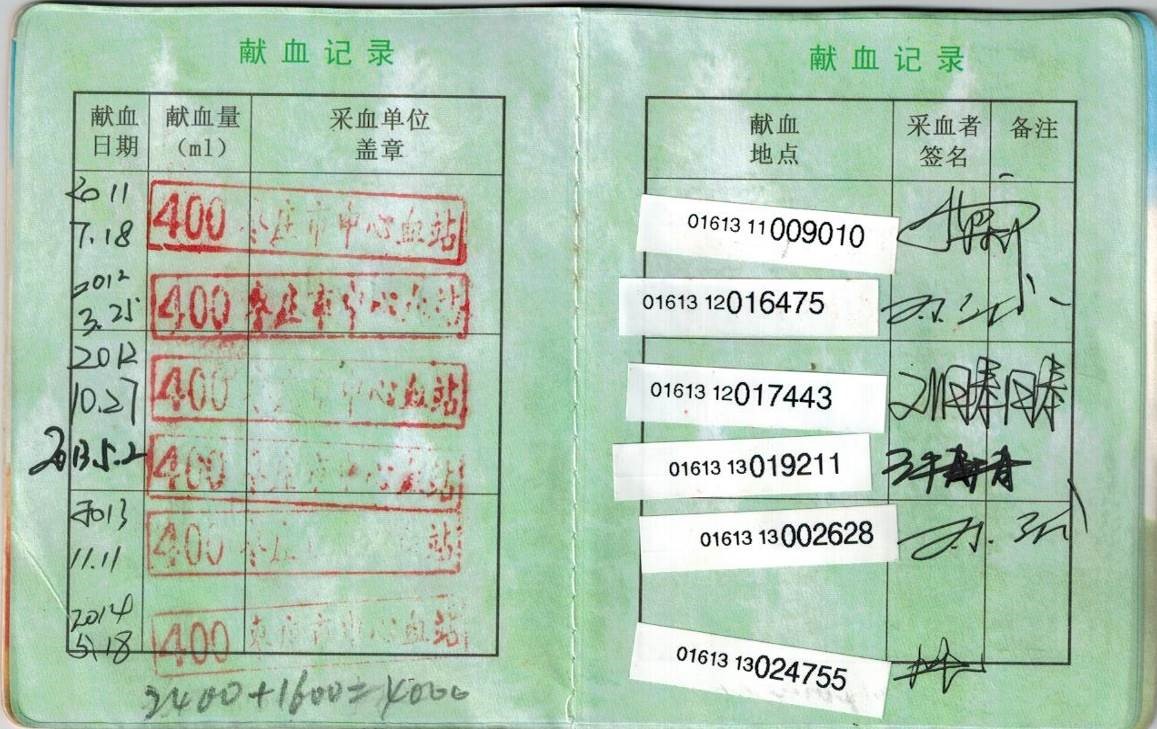 献血记录
献血日期 献血量(ml) 采血单位盖章
2011 7.18 400 枣庄市中心血站
2012 3.25 400 枣庄市中心血站
2012 10.27 400 枣庄市中心血站
2013.5.2 400 枣庄市中心血站
2013 11.11 400 枣庄市中心血站
2014 5.18 400 枣庄市中心血站
2400+1600=4000
献血记录
献血地点 采血者签名 备注
01613 11 009010
01613 12 016475
01613 12 017443
01613 13 019211
01613 13 002628
01613 13 024755